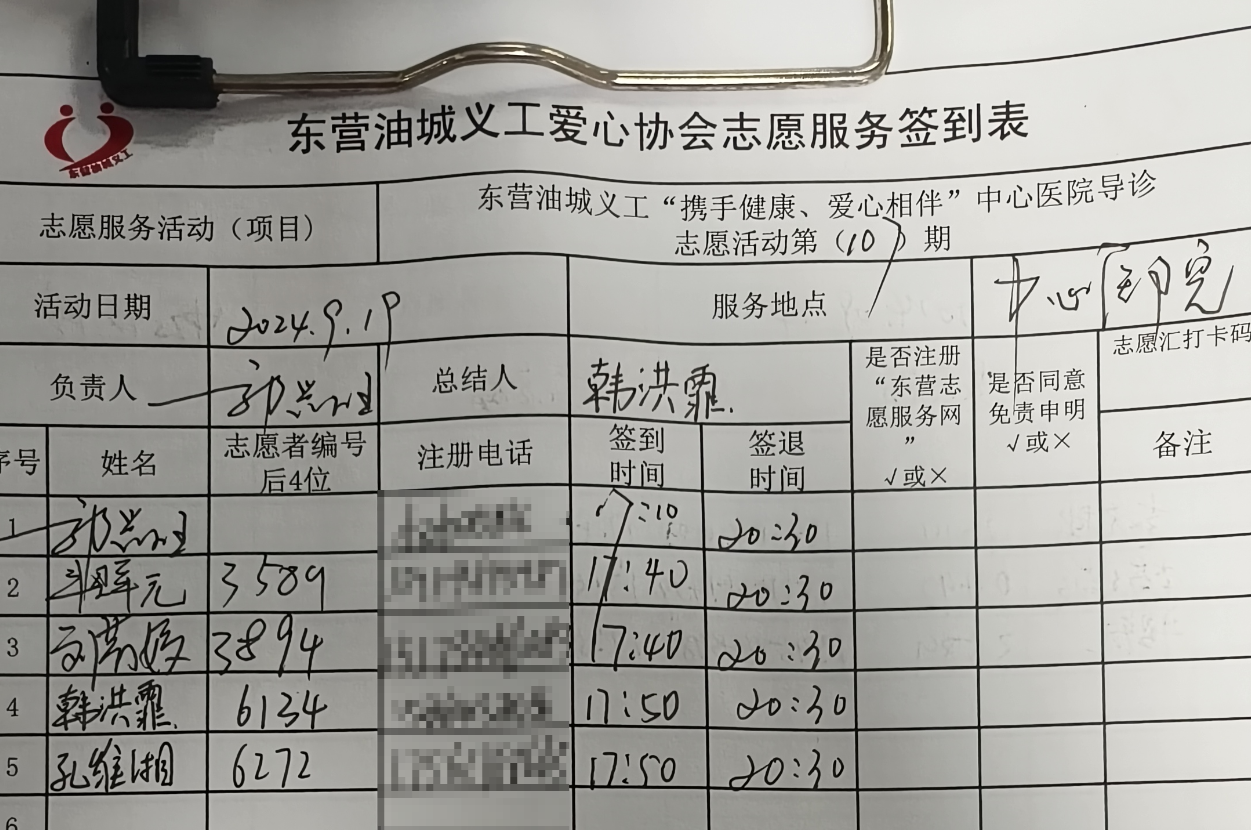 东营油城义工爱心协会志愿服务签到表
志愿服务活动（项目）
东营油城义工“携手健康、爱心相伴”中心医院导诊
志愿活动第（107）期
活动日期
2024.9.19
服务地点
中心医院
负责人
总结人
韩洪霏
是否注册
“东营志
愿服务网
”
√或×
是否同意
免责申明
√或×
志愿汇打卡码
备注
序号
姓名
志愿者编号
后4位
注册电话
签到
时间
签退
时间
1 17:10 20:30
2 3589 17:40 20:30
3 3894 17:40 20:30
4 韩洪霏 6134 17:50 20:30
5 孔维湘 6272 17:50 20:30
6